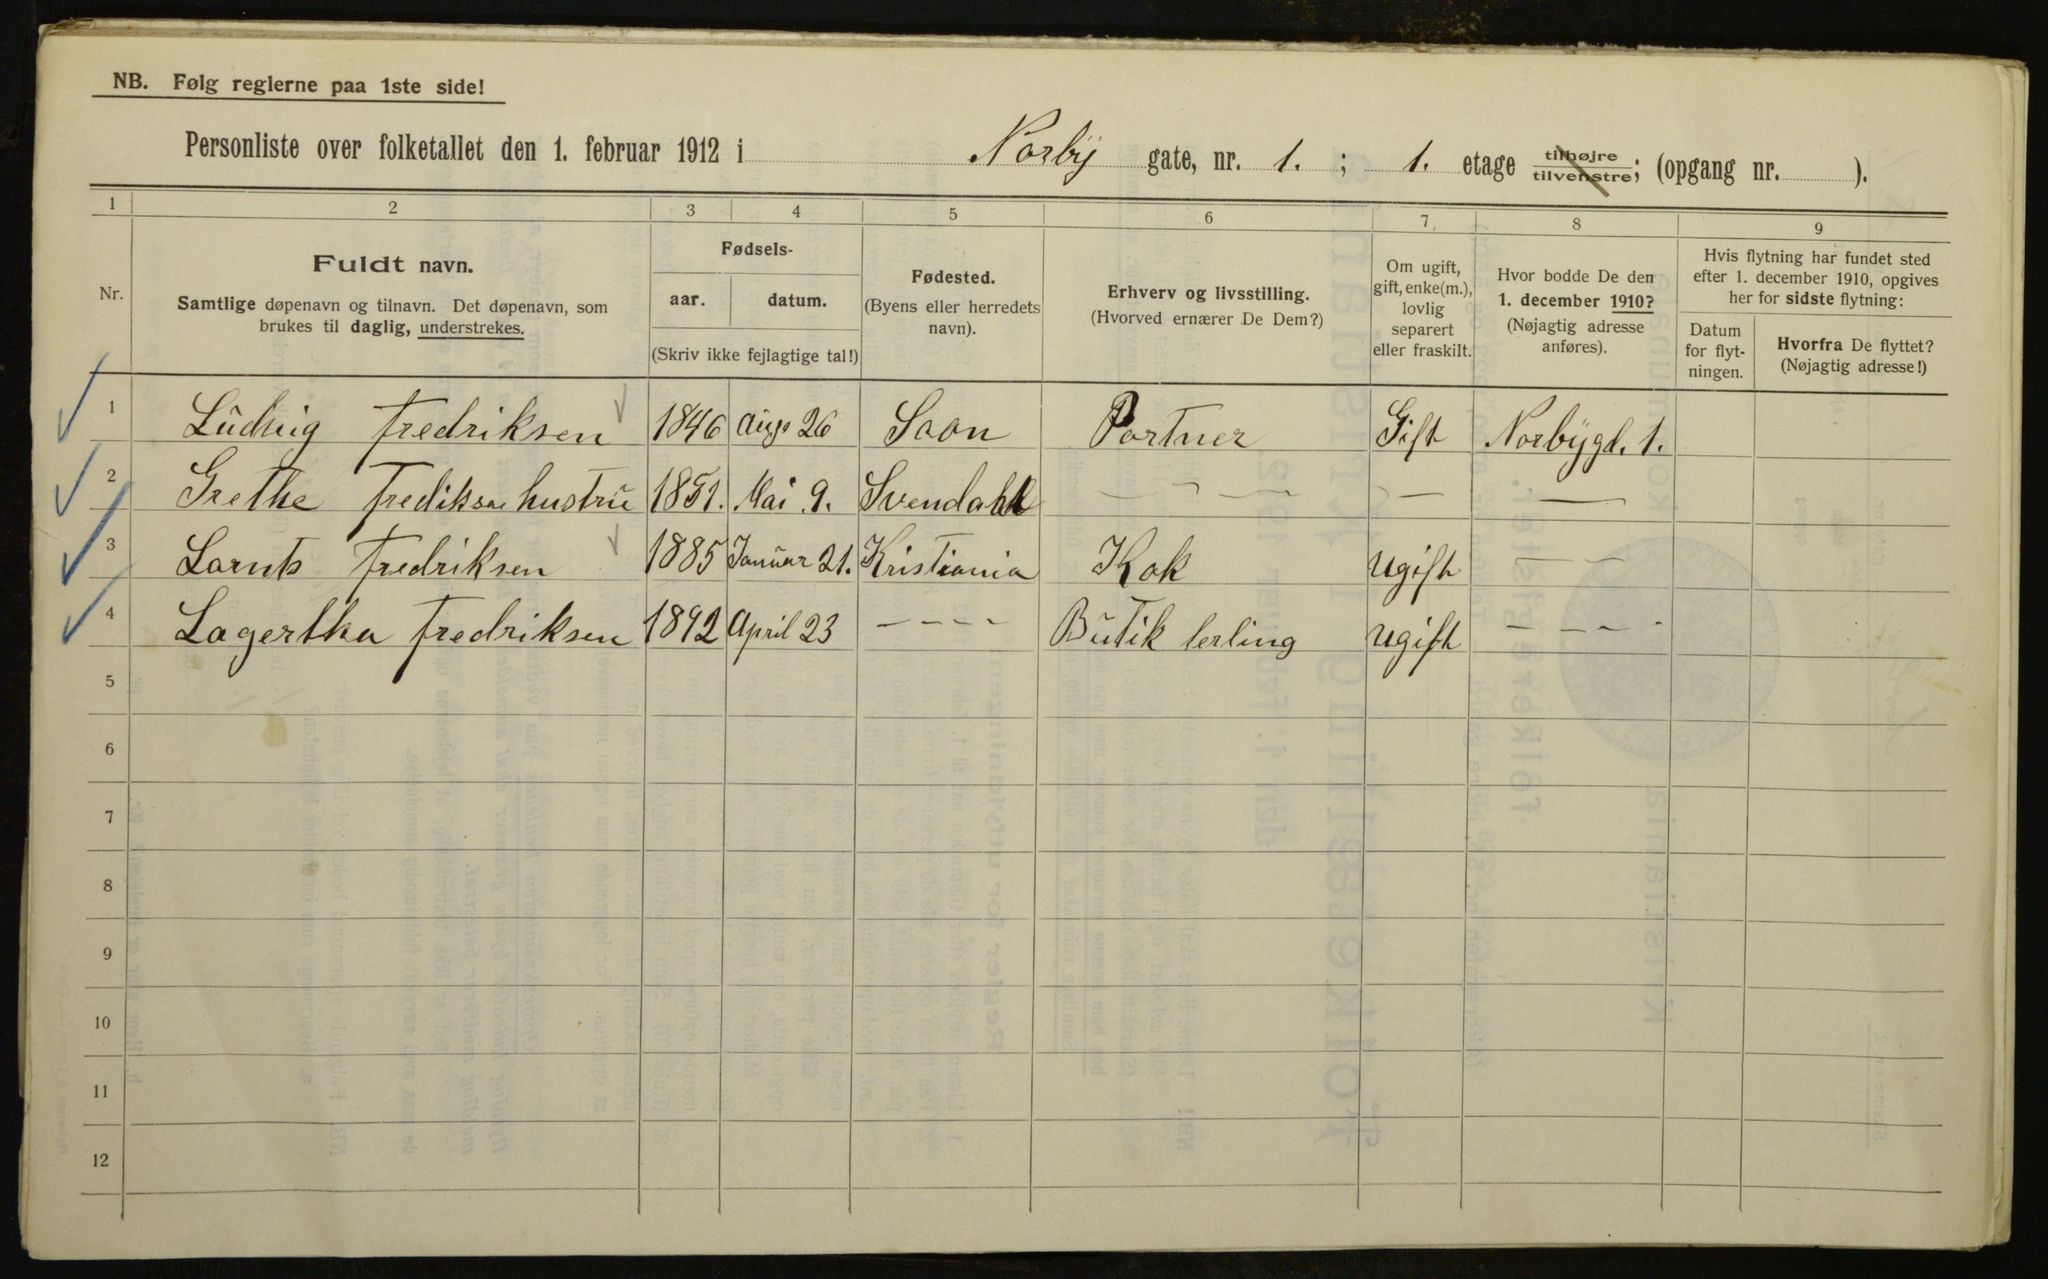 NB. Følg reglerne paa 1ste side!
Personliste over folketallet den 1. februar 1912 i Norby gate, nr. 1. ; 1. etage tilhøjre tilvenstre; (opgang nr. ).
1 2 3 4 5 6 7 8 9
Nr.
Fuldt navn.
Samtlige døpenavn og tilnavn. Det døpenavn, som
brukes til daglig, understrekes.
Fødsels-
aar. datum.
(Skriv ikke fejlagtige tal!)
Fødested.
(Byens eller herredets
navn).
Erhverv og livsstilling.
(Hvorved ernærer De Dem?)
Om ugift,
gift, enke(m.),
lovlig
separert
eller fraskilt.
Hvor bodde De den
1. december 1910?
(Nøjagtig adresse
anføres).
Hvis flytning har fundet sted
efter 1. december 1910, opgives
her for sidste flytning:
Datum
for flyt-
ningen.
Hvorfra De flyttet?
(Nøjagtig adresse!)
1 Ludvig Fredriksen 1846 Aug 26 Soon Portner Gift Norbygd. 1.
2 Grethe Frediksen hustru 1851. Mai 9. Svendahl — — — — —
3 Lornts Fredriksen 1885 Januar 21. Kristiania Kok Ugift — —
4 Lagertha Fredriksen 1892 April 23 — — — — Butik lerling Ugift — — — -
5
6
7
8
9
10
11
12